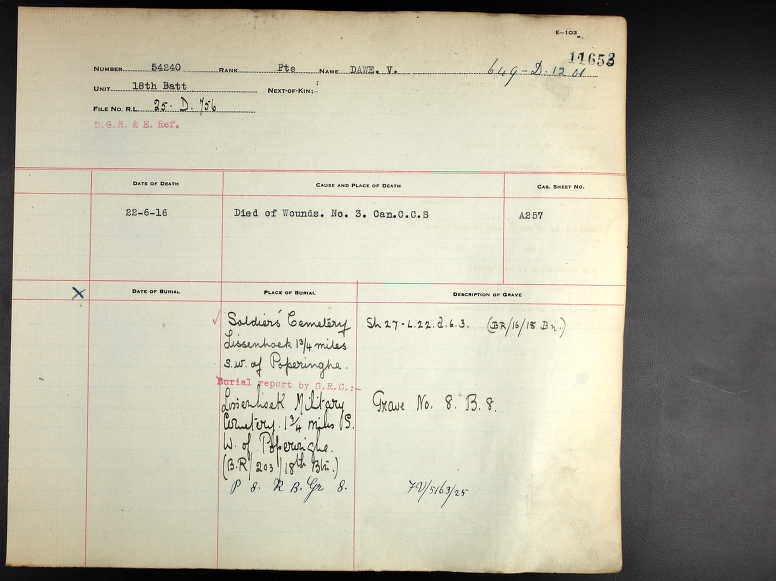 E-103
11653
NUMBER 54240 RANK Pte NAME DAWE. V. 649-D-1201
UNIT 18th Batt NEXT-OF-KIN:-
FILE NO. R.L. 25-D.756
D.G.R. & E. Ref.
DATE OF DEATH CAUSE AND PLACE OF DEATH CAS. SHEET NO.
22-6-16 Died of Wounds. No. 3. Can.C.C.S A257
X DATE OF BURIAL PLACE OF BURIAL DESCRIPTION OF GRAVE
Soldiers' Cemetery Sh 27-L.22.d.6.3. (BR/16/18 Bn.)
Lissenhoek 1 3/4 miles
S.W. of Poperinghe.
Burial report by G.R.C.:-
Lissenhoek Military Grave No. 8. B. 8.
Cemetery. 1 3/4 miles S.
W. of Poperinghe.
(B.R/203/18th Btn.)
P 8. R B. Gr 8.